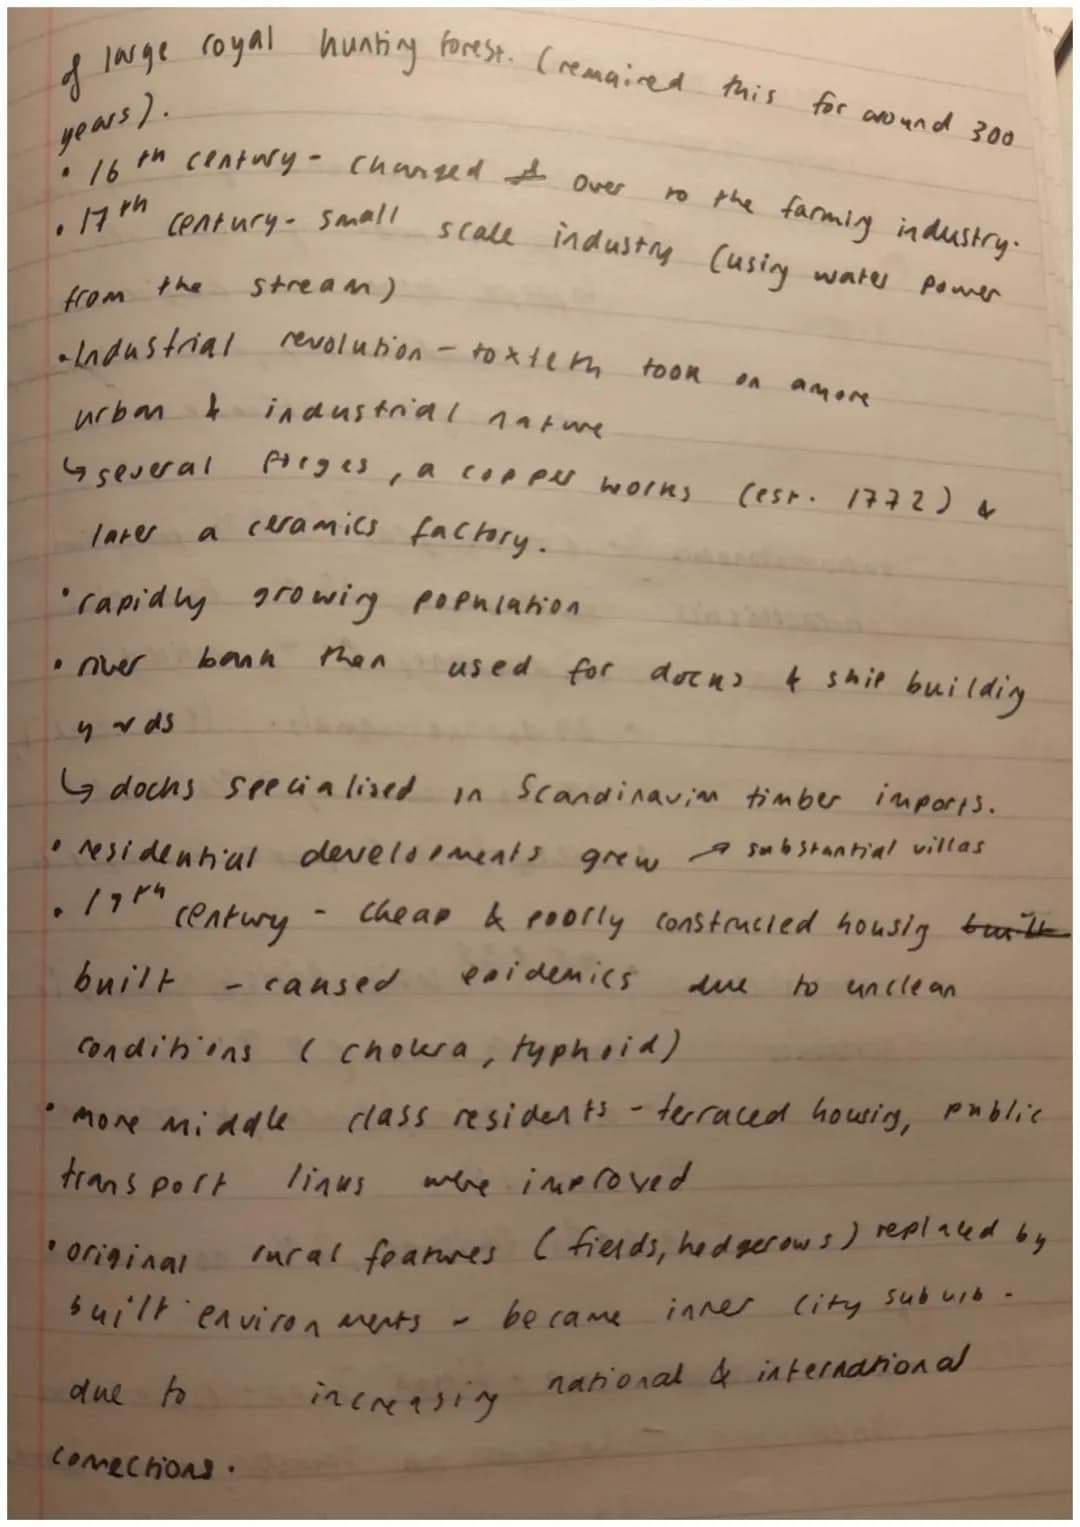 of large royal hunting forest. (remained this for around 300
years).
• 16th century - changed over to the farming industry.
• 17th century - small scale industry (using water power
from the stream)
• Industrial revolution - toxteth took on a more
urban & industrial nature
↳ several forges, a copper works (est. 1772) &
later a ceramics factory.
• rapidly growing population
• river bank then used for docks & ship building
yards
↳ docks specialised in Scandinavian timber imports.
• residential developments grew → substantial villas
• 19th century - cheap & poorly constructed housing built
built - caused epidemics due to unclean
conditions (cholera, typhoid)
• more middle class residents - terraced housing, public
transport links were improved
• original rural features (fields, hedgerows) replaced by
built environments - became inner city suburb -
due to increasing national & international
connections.